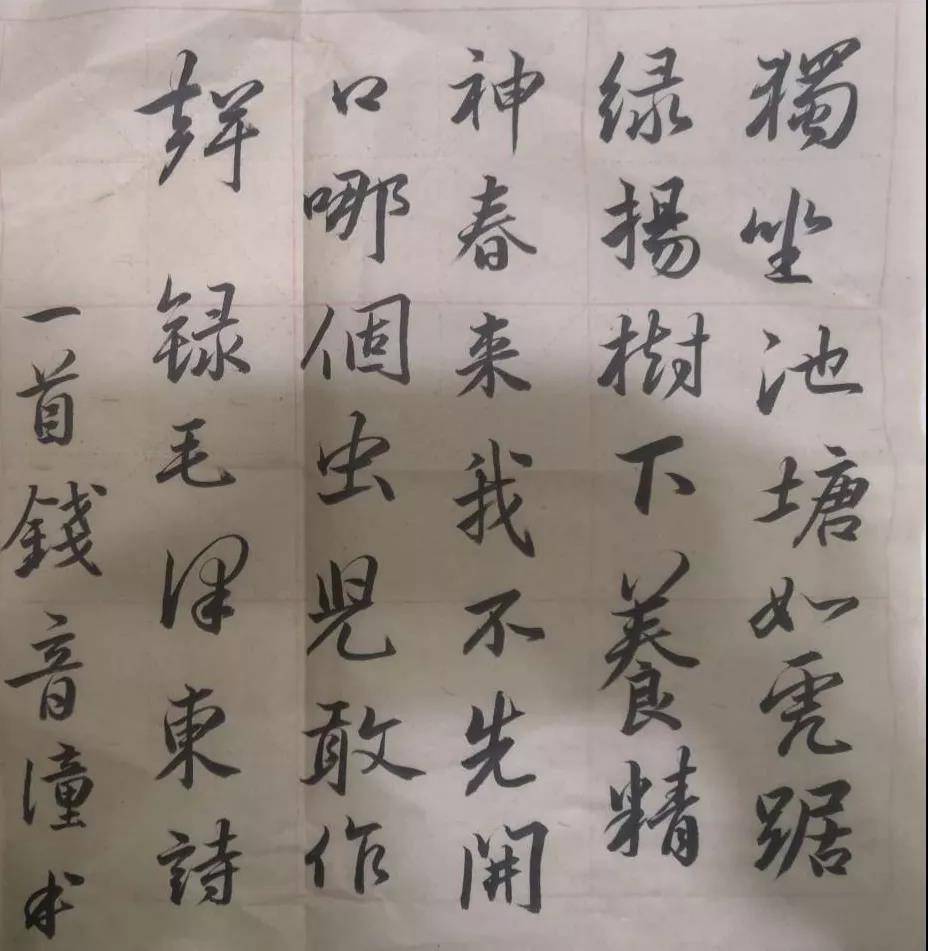 獨坐池塘如虎踞
绿揚樹下養精
神春来我不先開
口哪個虫兒敢作
録毛泽東詩
一首錢音潼书